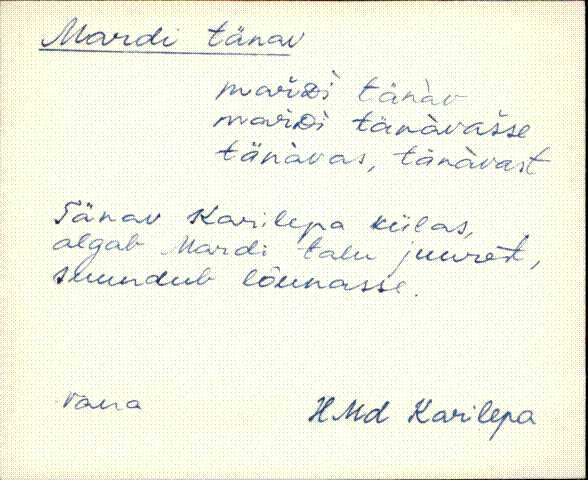 Mardi tänav
mar̆Dì tänàv
mar̆Dì tänàvašse
tänàvas, tänàvast
Tänav Karilepa külas,
algab Mardi talu juurest,
suundub lõunasse.
vana
HMd Karilepa